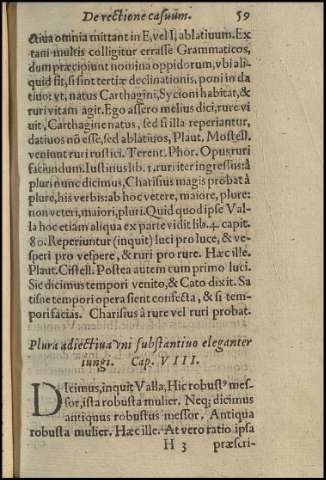 De rectione casuũm. 59
ctiua omnia mittant in E, vel I, ablatiuum. Ex
tani multis colligitur errasse Grammaticos,
dum præcipiunt nomina oppidorum, vbi ali-
quid fit, si sint tertiæ declinationis, poni in da
tiuo: vt, natus Carthagini, Sycioni habitat, &
ruri vitam agit. Ego assero melius dici, rure vi
uit, Carthagine natus, sed si illa reperiantur,
datiuos nõ esse, sed ablatiuos, Plaut. Mostell.
veniunt ruri rustici. Terent. Phor. Opus ruri
faciundum. Iustinus lib. 1. ruri iter ingressus: à
pluri nunc dicimus, Charisius magis probat à
plure, his verbis: ab hoc vetere, maiore, plure:
non veteri, maiori, pluri. Quid quod ipse Val-
la hoc etiam aliqua ex parte vidit lib. 4. capit.
80. Reperiuntur (inquit) luci pro luce, & ve-
speri pro vespere, & ruri pro rure. Hæc ille.
Plaut. Cistell. Postea autem cum primo luci.
Sie dicimus tempori venito, & Cato dixit. Sa
tisne tempori opera sient confecta, & si tem-
pori facias. Charisius à rure vel ruri probat.
Plura adiectiua vni substantiuo eleganter
iungi. Cap. VIII.
DIcimus, inquit Valla, Hic robustꝰ mes-
sor, ista robusta mulier. Neq; dicimus
antiquus robustus messor. Antiqua
robusta mulier. Hæc ille. At vero ratio ipsa
H 3 præscri-